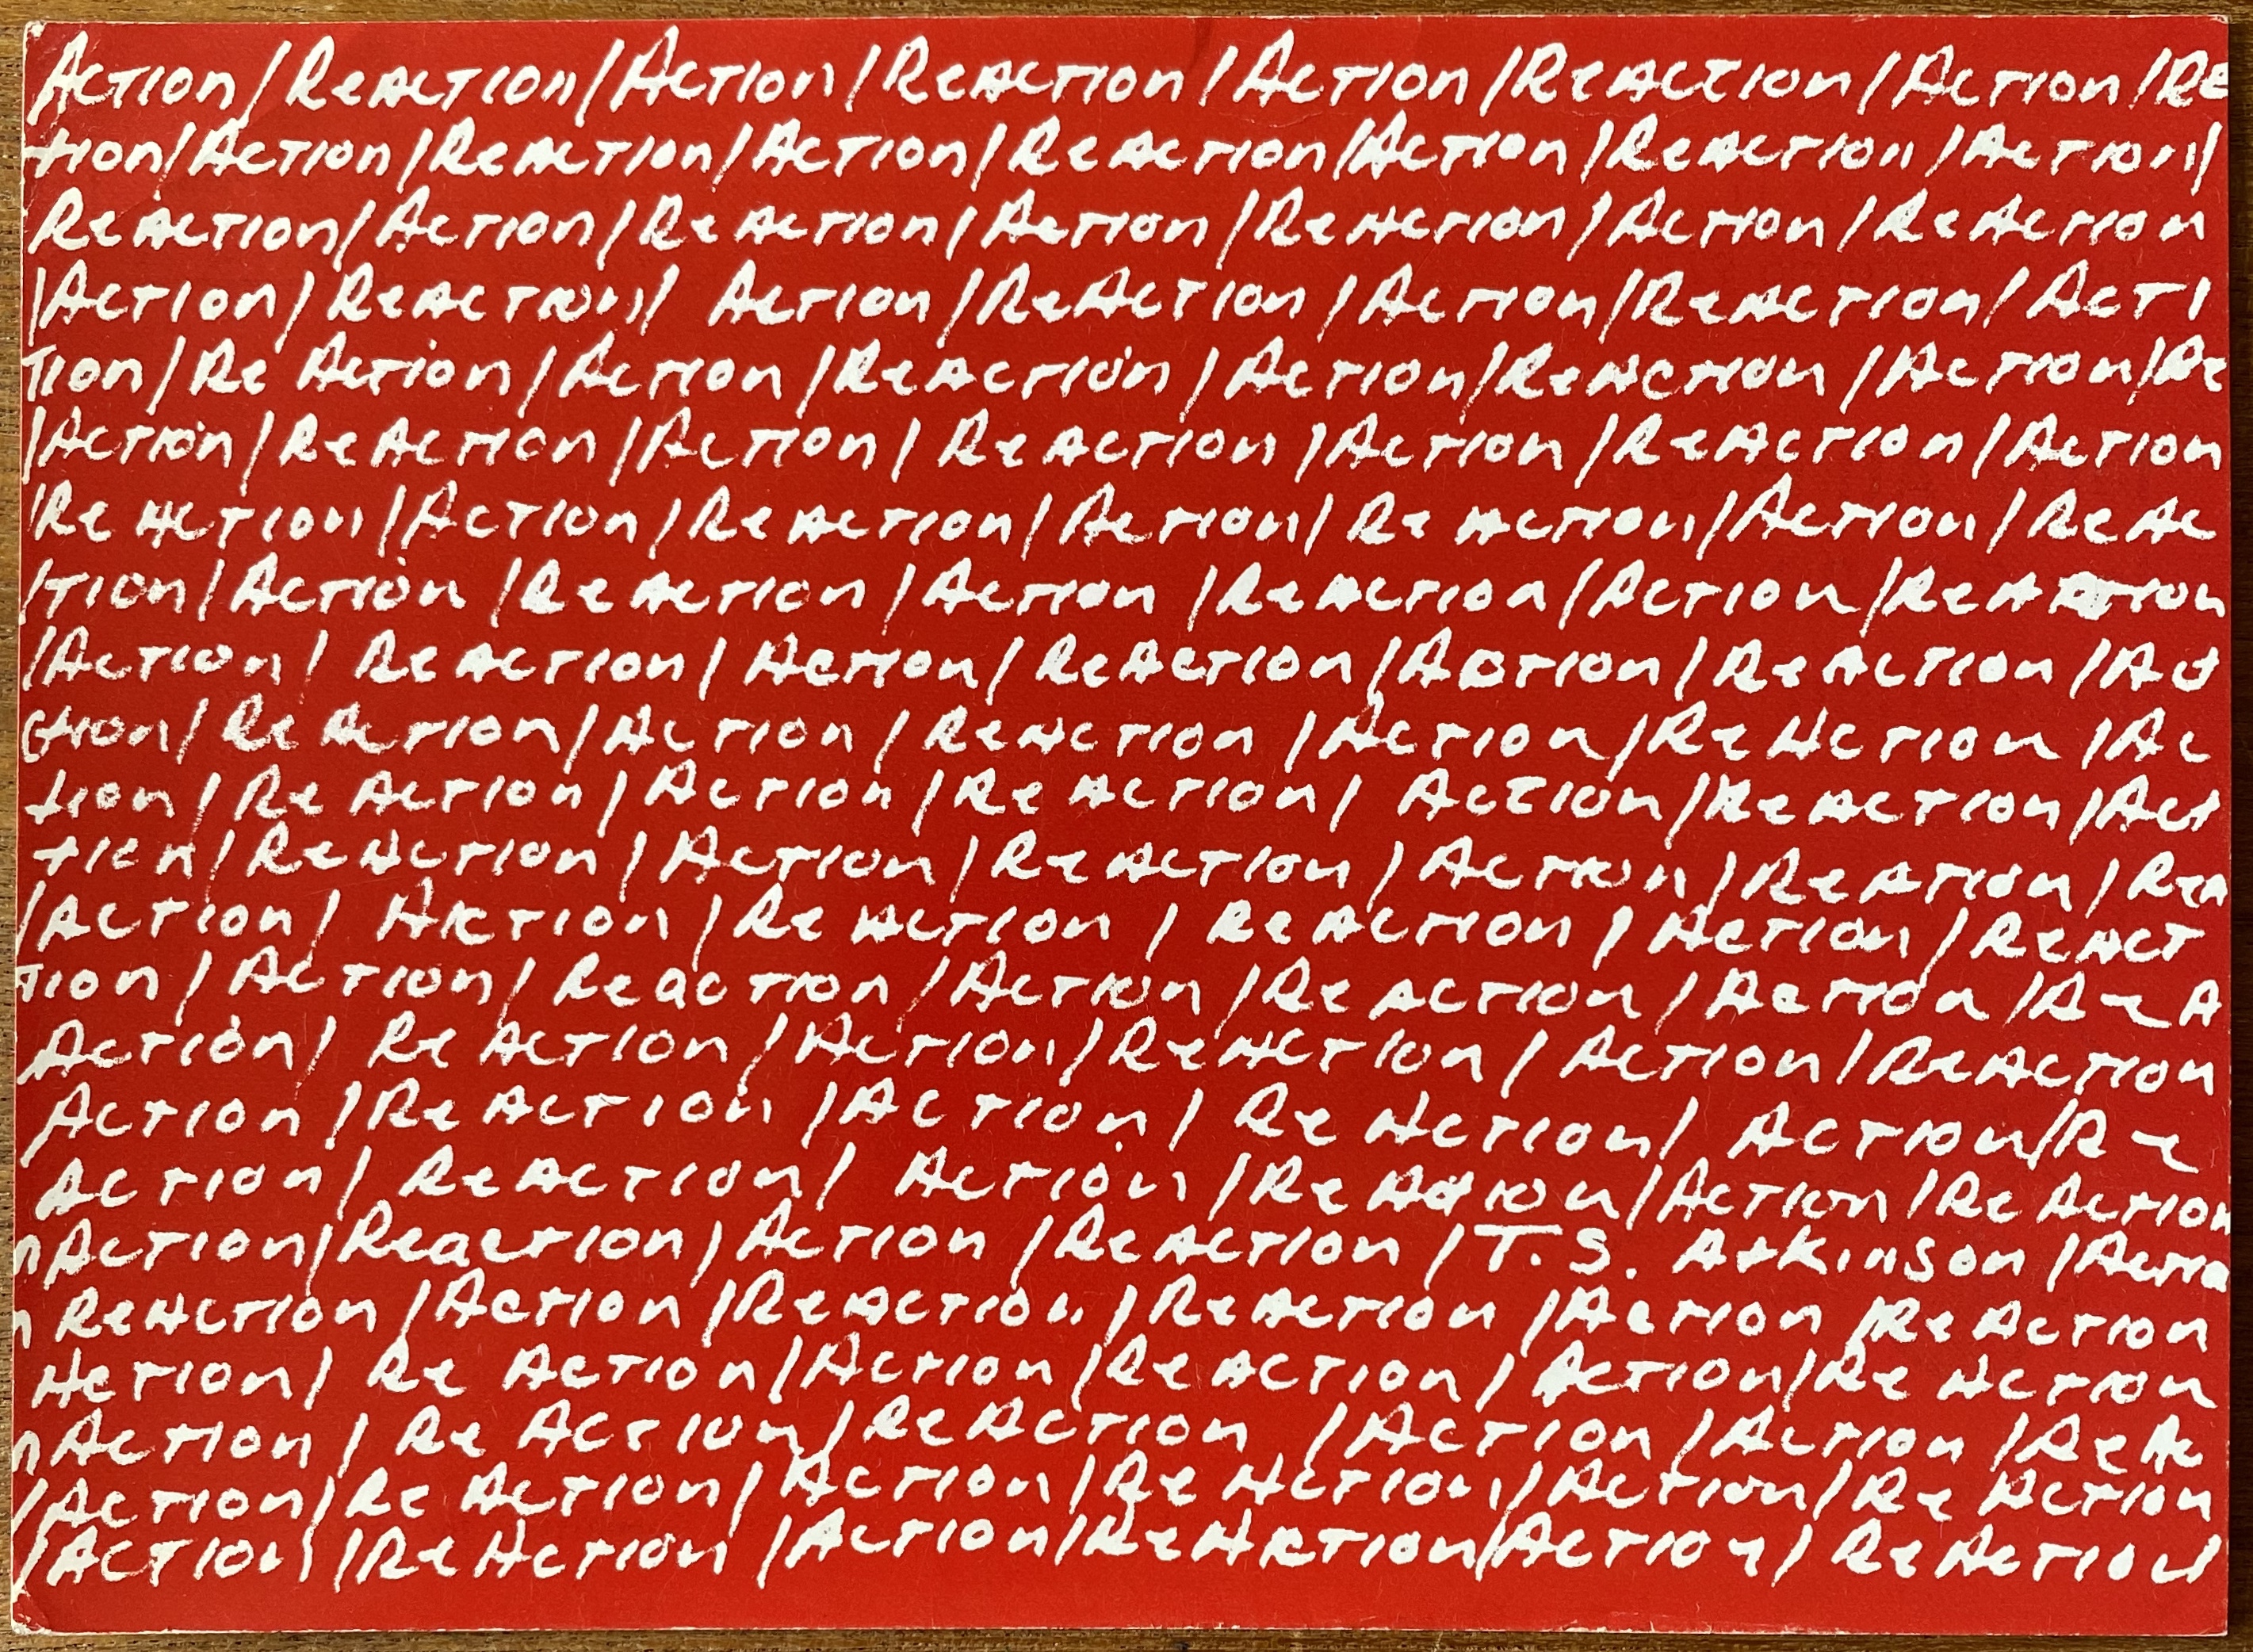 Action/ReAction/Action/ReAction/Action/ReAction/Action/Re
tion/Action/ReAction/Action/ReAction/Action/ReAction/Action/
ReAction/Action/ReAction/Action/ReAction/Action/ReAction
/Action/ReAction/ Action/ReAction/Action/ReAction/Acti
Tion/Re Action/Action/ReAction/Action/ReAction/Action/Re
/Action/ReAction/Action/ReAction/Action/ReAction/Action
/ReAction/Action/ReAction/Action/ReAction/Action/ReAc
/Tion/Action/ReAction/Action/ReAction/Action/ReAction
/Action/ReAction/Action/ReAction/Action/ReAction/Act
ction/ReAction/Action/ReAction/Action/ReAction/Ac
tion/ReAction/Action/ReAction/Action/ReAction/Act
tion/ReAction/Action/ReAction/Action/ReAtion/Rea
/Action/Action/ReAction/ReAction/Action/ReAct
Tion/Action/Reaction/Action/ReAction/Action/ReA
Action/ReAction/Action/ReAction/Action/ReAction
Action/ReAction/Action/ReAction/Action/Re
Action/ReAction/Action/ReAction/Action/ReAction
n Action/Reaction/Action/ReAction/T.S. Atkinson/Actio
n ReAction/Action/ReAction/ReAction/Action/ReAction
Action/ReAction/Action/ReAction/Action/ReAction
n Action/ReAction/ReAction/Action/Action/ReAc
/Action/ReAction/Action/ReAction/Action/ReAction
/Action/ReAction/Action/ReAction/Action/ReAction